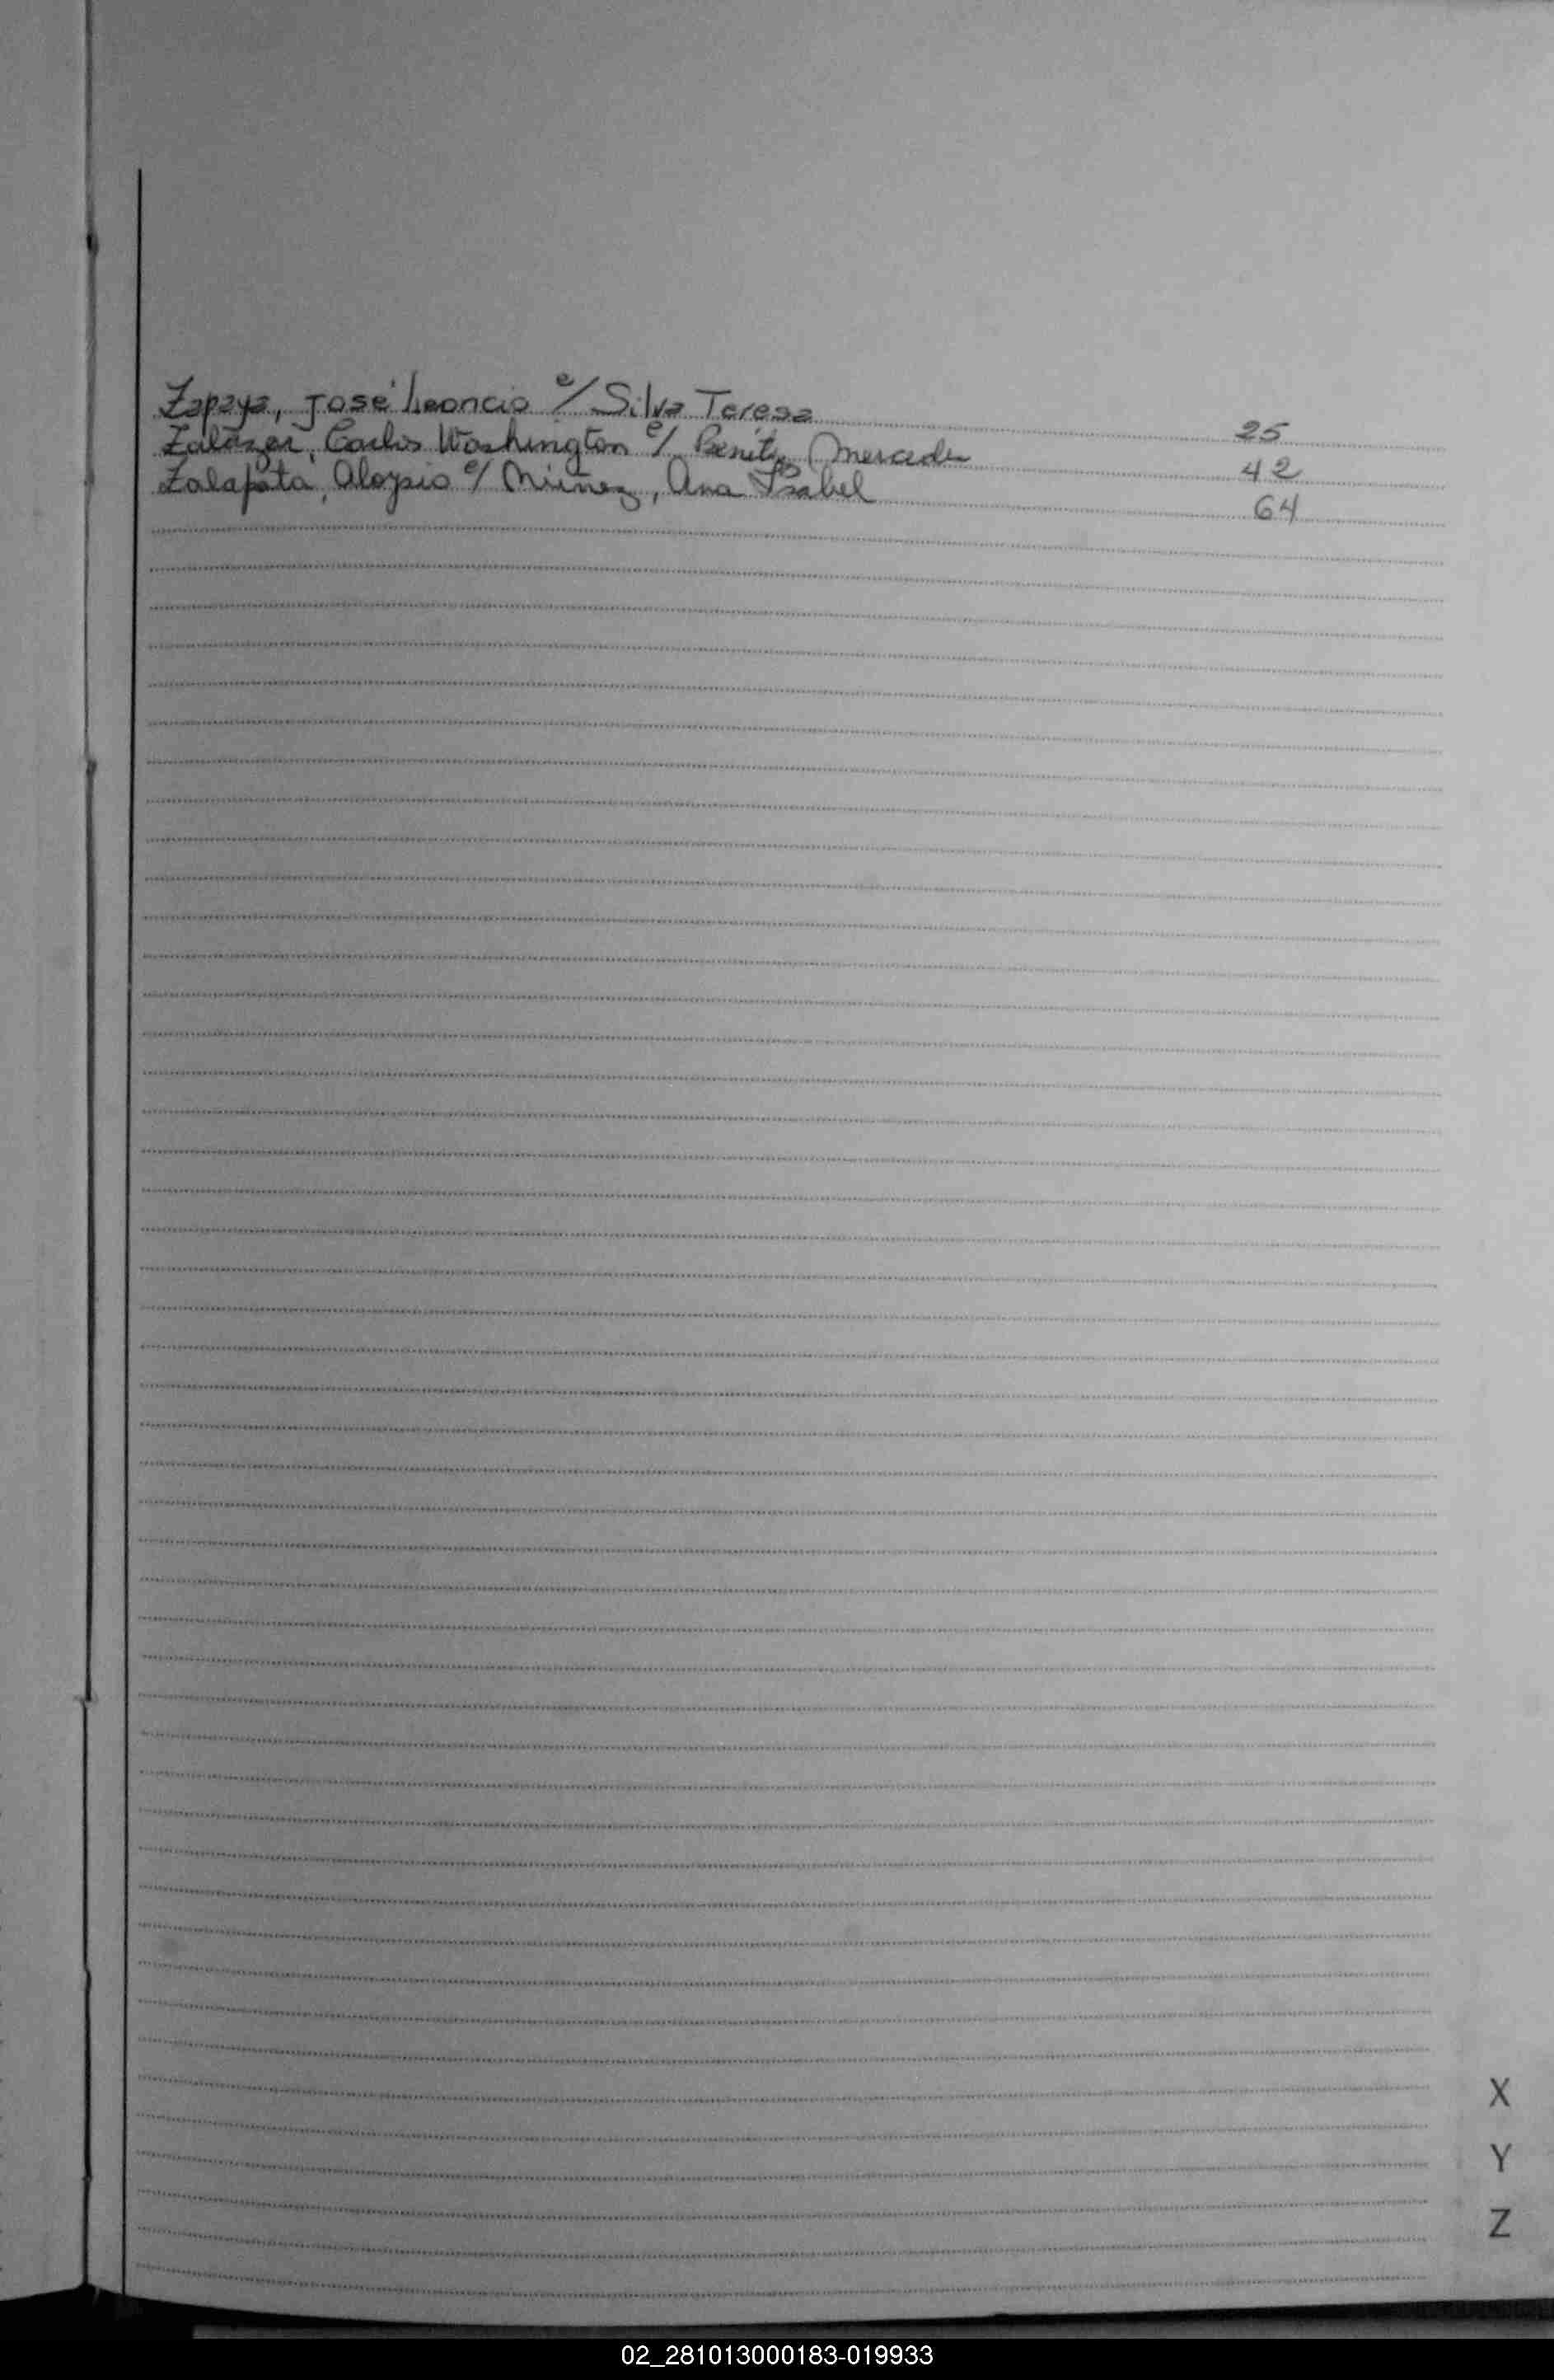 Zapaya, José Leoncio c/ Silva Teresa 25
Zalazar, Carlos Washington c/ Benitez Mercedes 42
Zalapata, Aloysio c/ Múñez, Ana Isabel 64
X
Y
Z
02_281013000183-019933